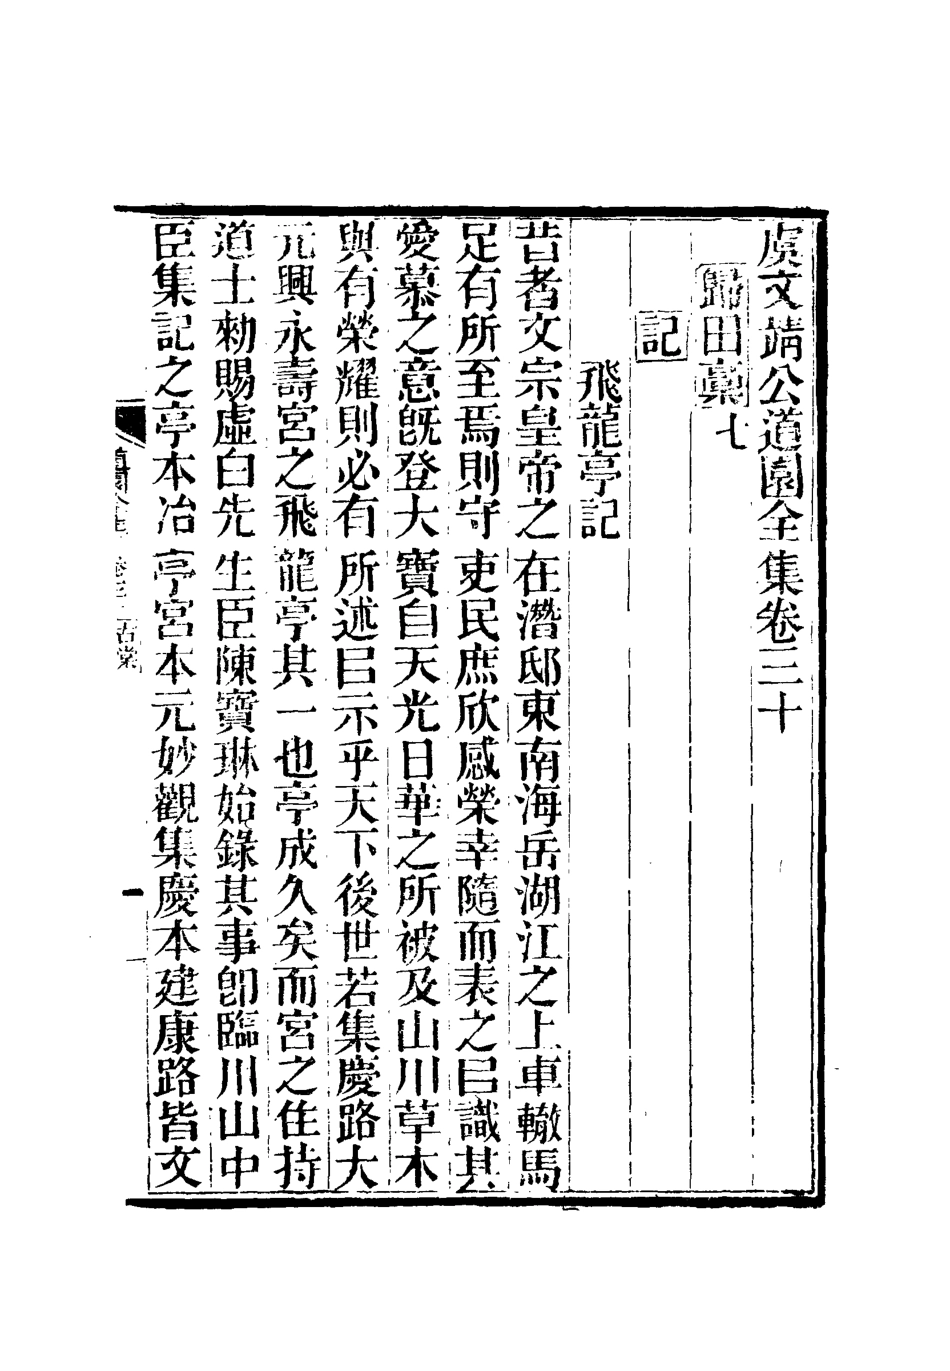 虞文靖公道園全集卷三十
歸田藁七
記
飛龍亭記
昔者文宗皇帝之在潛邸東南海岳湖江之上車轍馬
足有所至焉則守吏民庶欣感榮幸隨而表之㠯識其
愛慕之意旣登大寶自天光日華之所被及山川草木
與有榮耀則必有所述㠯示乎天下後世若集慶路大
元興永壽宮之飛龍亭其一也亭成久矣而宮之住持
道士勑賜虛白先生臣陳寶琳始錄其事卽臨川山中
臣集記之亭本冶亭宮本元妙觀集慶本建康路皆文
道園全集
一